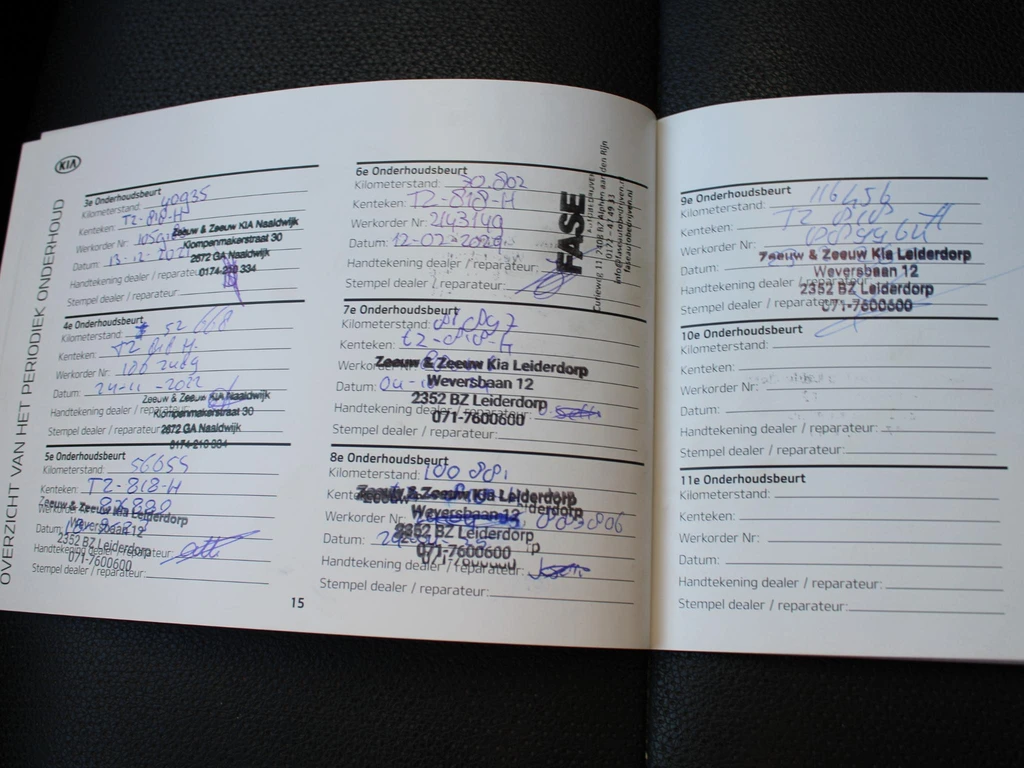 KIA
OVERZICHT VAN HET PERIODIEK ONDERHOUD
3e Onderhoudsbeurt
Kilometerstand: 40935
Kenteken: T2-818-H
Werkorder Nr:
Datum: 13-12-2021
Handtekening dealer / reparateur:
Stempel dealer / reparateur:
Zeeuw & Zeeuw KIA Naaldwijk
Klompenmakerstraat 30
2672 GA Naaldwijk
0174-210 334
4e Onderhoudsbeurt
Kilometerstand: 52 668
Kenteken: T2 818 H
Werkorder Nr:
Datum: 24-11-2022
Handtekening dealer / reparateur:
Stempel dealer / reparateur:
Zeeuw & Zeeuw KIA Naaldwijk
Klompenmakerstraat 30
2672 GA Naaldwijk
0174-210 334
5e Onderhoudsbeurt
Kilometerstand: 56655
Kenteken: T2-818-H
Werkorder Nr:
Datum:
Handtekening dealer / reparateur:
Stempel dealer / reparateur:
Zeeuw & Zeeuw Kia Leiderdorp
Weversbaan 12
2352 BZ Leiderdorp
071-7600600
15
6e Onderhoudsbeurt
Kilometerstand:
Kenteken: T2-818-H
Werkorder Nr: 2143149
Datum: 12-02-2024
Handtekening dealer / reparateur:
Stempel dealer / reparateur:
FASE
Curieweg 11, 2408 BZ Alphen aan den Rijn
0172 - 47 49 33
7e Onderhoudsbeurt
Kilometerstand:
Kenteken: T2-818-H
Werkorder Nr:
Datum:
Handtekening dealer / reparateur:
Stempel dealer / reparateur:
Zeeuw & Zeeuw Kia Leiderdorp
Weversbaan 12
2352 BZ Leiderdorp
071-7600600
8e Onderhoudsbeurt
Kilometerstand: 100 881
Kenteken:
Werkorder Nr: 883806
Datum:
Handtekening dealer / reparateur:
Stempel dealer / reparateur:
Zeeuw & Zeeuw Kia Leiderdorp
Weversbaan 12
2352 BZ Leiderdorp
071-7600600
9e Onderhoudsbeurt
Kilometerstand: 116456
Kenteken: T2 818 H
Werkorder Nr:
Datum:
Handtekening dealer / reparateur:
Stempel dealer / reparateur:
Zeeuw & Zeeuw Kia Leiderdorp
Weversbaan 12
2352 BZ Leiderdorp
071-7600600
10e Onderhoudsbeurt
Kilometerstand:
Kenteken:
Werkorder Nr:
Datum:
Handtekening dealer / reparateur:
Stempel dealer / reparateur:
11e Onderhoudsbeurt
Kilometerstand:
Kenteken:
Werkorder Nr:
Datum:
Handtekening dealer / reparateur:
Stempel dealer / reparateur: